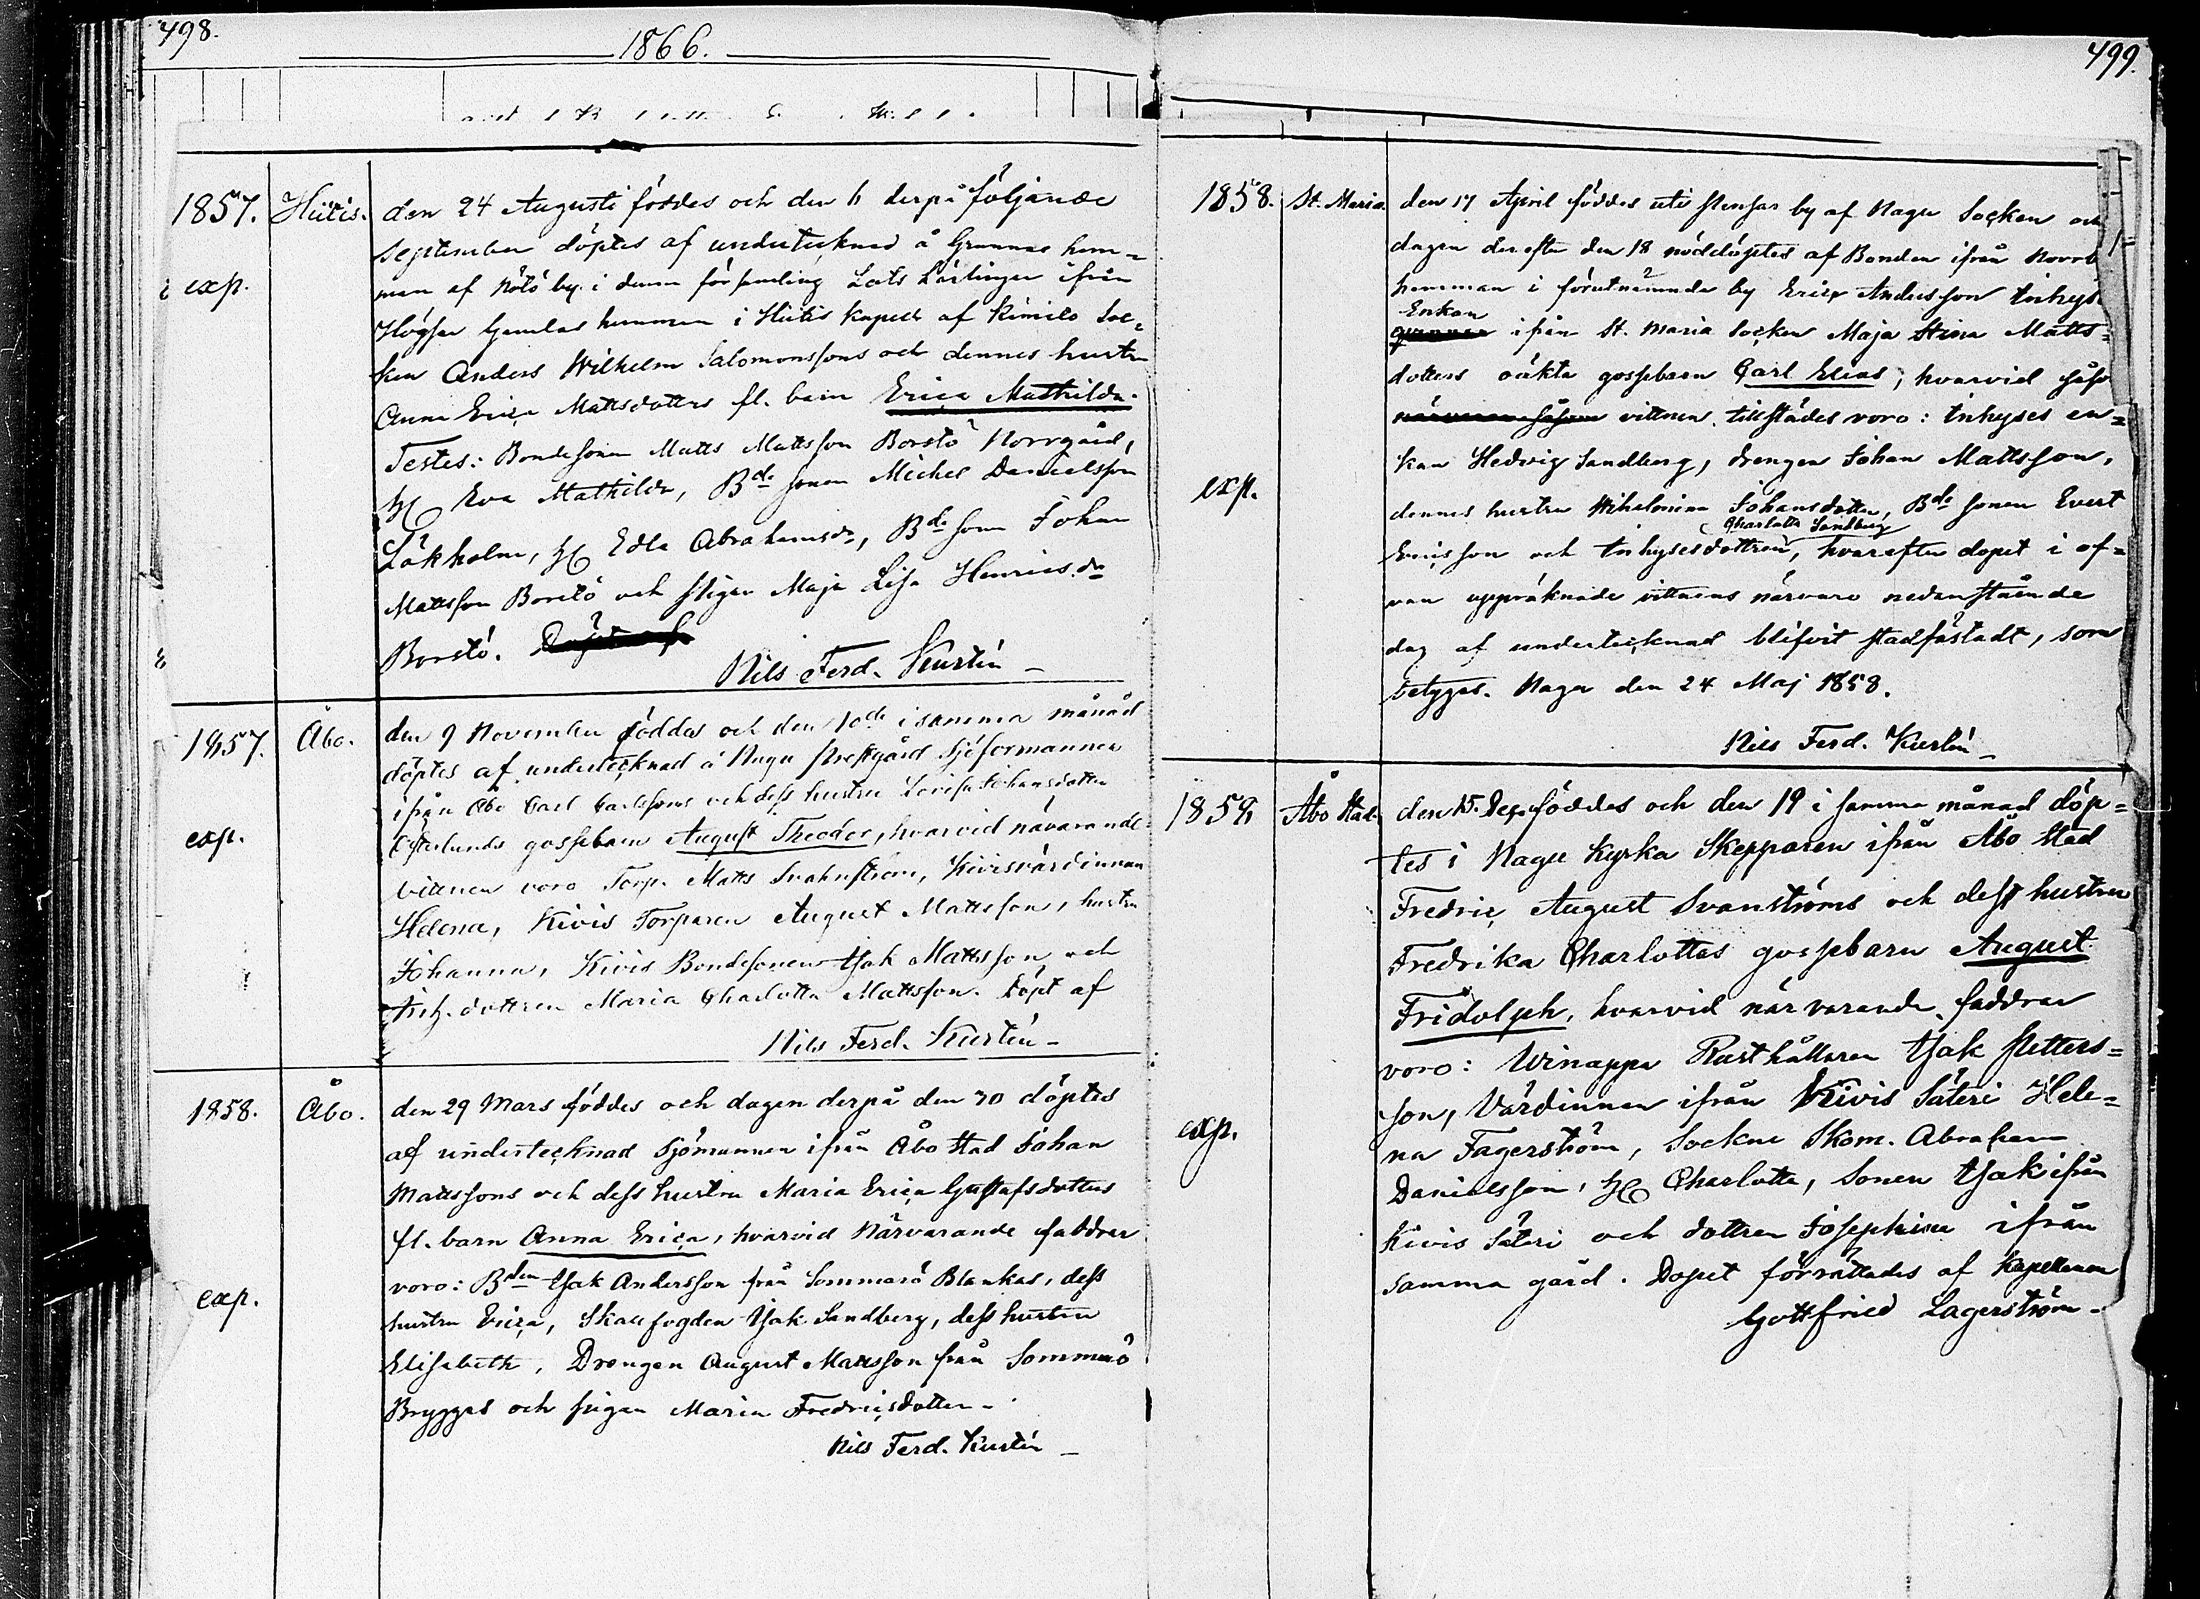 498.
1866.
1857. Hitis. den 24 Augusti föddes och den 6 derpå följande
September döptes af undertecknad å Grannas hem-
exp. man af Nötö by i denna församling Lots Lärlingen ifrån
Högsar Gamlas hemman i Hitis Kapell af Kimito Soc-
ken Anders Wilhelm Salomonssons och dennes hustru
Anna Erica Mattsdotters fl. barn Erica Mathilda.
Testes: Bondesonen Matts Mattsson Borstö Norrgård,
H Eva Mathilda, Bde sonen Michel Danielsson
Lökholm, H Edla Abrahamsdr, Bde sonen Johan
Mattsson Borstö och pigan Maja Lisa Henricsdr
Borstö.
Nils Ferd. Kurtén
1857. Åbo. den 9 November föddes och den 10de i samma månad
döptes af undertecknad å Nagu Prestgård Sjöformannen
ifrån Åbo Carl Carlssons och dess hustru Lovisa Johansdotter
exp. Österlunds gossebarn August Theodor, hvarvid närvarande
vittnen voro Torp. Matts Svahnström, Kivisvärdinnan
Helena, Kivis Torparen August Mattsson, hustru
Johanna, Kivis Bondesonen Isak Mattsson och
Inh. dottren Maria Charlotta Mattsson. Döpt af
Nils Ferd. Kurtén
1858. Åbo. den 29 Mars föddes och dagen derpå den 30 döptes
af undertecknad Sjömannen ifrån Åbo Stad Johan
Mattssons och dess hustru Maria Erica Gustafsdotters
fl. barn Anna Erica, hvarvid Närvarande faddrar
voro: Bden Isak Andersson från Sommarö Blankas, dess
exp. hustru Erica, Skallfogden Isak Sandberg, dess hustru
Elisabeth, Drengen August Mattsson från Sommarö
Bryggas och pigan Maria Fredricsdotter
Nils Ferd. Kurtén
499.
1858. St. Maria. den 17 April föddes uti Pensar by af Nagu Socken och
dagen derefter den 18 nöddöptes af Bonden ifrån
hemman i förutnämnde by Eric Andersson Inhyses
Enkan
qvinnan ifrån St. Maria Socken Maja Stina Matts-
dotters oäkta gossebarn Carl Elias, hvarvid såsom
närvarande såsom vittnen tillstädes voro: Inhyses en-
kan Hedvig Sandberg, drengen Johan Mattsson,
exp. dennes hustru Wihelmina Johansdotter, Bde sonen Evert
Charlotta Sandberg
Ericsson och Inhysesdottren, hvarefter dopet i of-
van uppräknade vittnens närvaro nedanstående
dag af undertecknad blifvit stadfästadt, som
betygas. Nagu den 24 Maj 1858.
Nils Ferd. Kurtén
1858, Åbo Stad. den 15. Dec. föddes och den 19 i samma månad döp-
tes i Nagu Kyrka Skepparen ifrån Åbo Stad
Fredric August Svanströms och dess hustru
Fredrika Charlottas gossebarn August
Fridolph, hvarvid närvarande faddrar
voro: Winappa Rusthållaren Isak Petters-
son, Värdinnan ifrån Kivis Säteri Hele-
exp. na Fagerström, Sockne Skom. Abraham
Danielsson, H Charlotta, Sonen Isak ifrån
Kivis Säteri och dottren Josephina ifrån
samma gård. Dopet förrättades af Kapellanen
Gottfried Lagerström